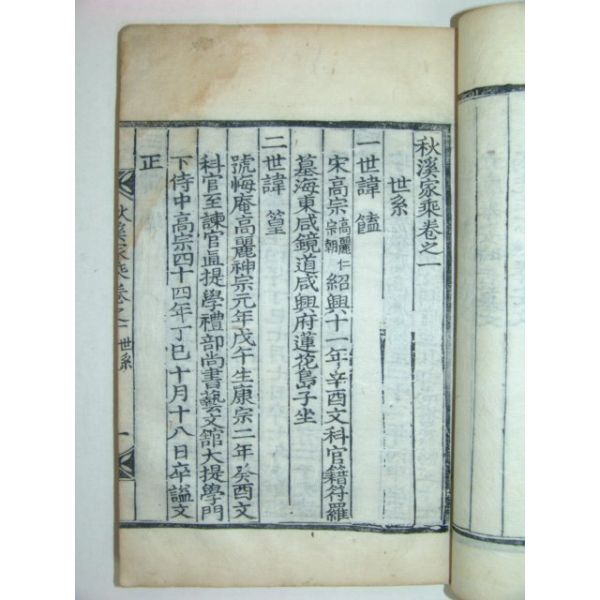 秋溪家乘卷之一
世系
一世諱饁
宋高宗高麗仁宗朝紹興十一年辛酉文科官籍符羅
墓海東咸鏡道咸興府蓮花島子坐
二世諱篁
號悔庵高麗神宗元年戊午生康宗二年癸酉文
科官至諫官直提學禮部尚書藝文館大提學門
下侍中高宗四十四年丁巳十月十八日卒謚文
正
秋溪家乘卷之一 世系 一